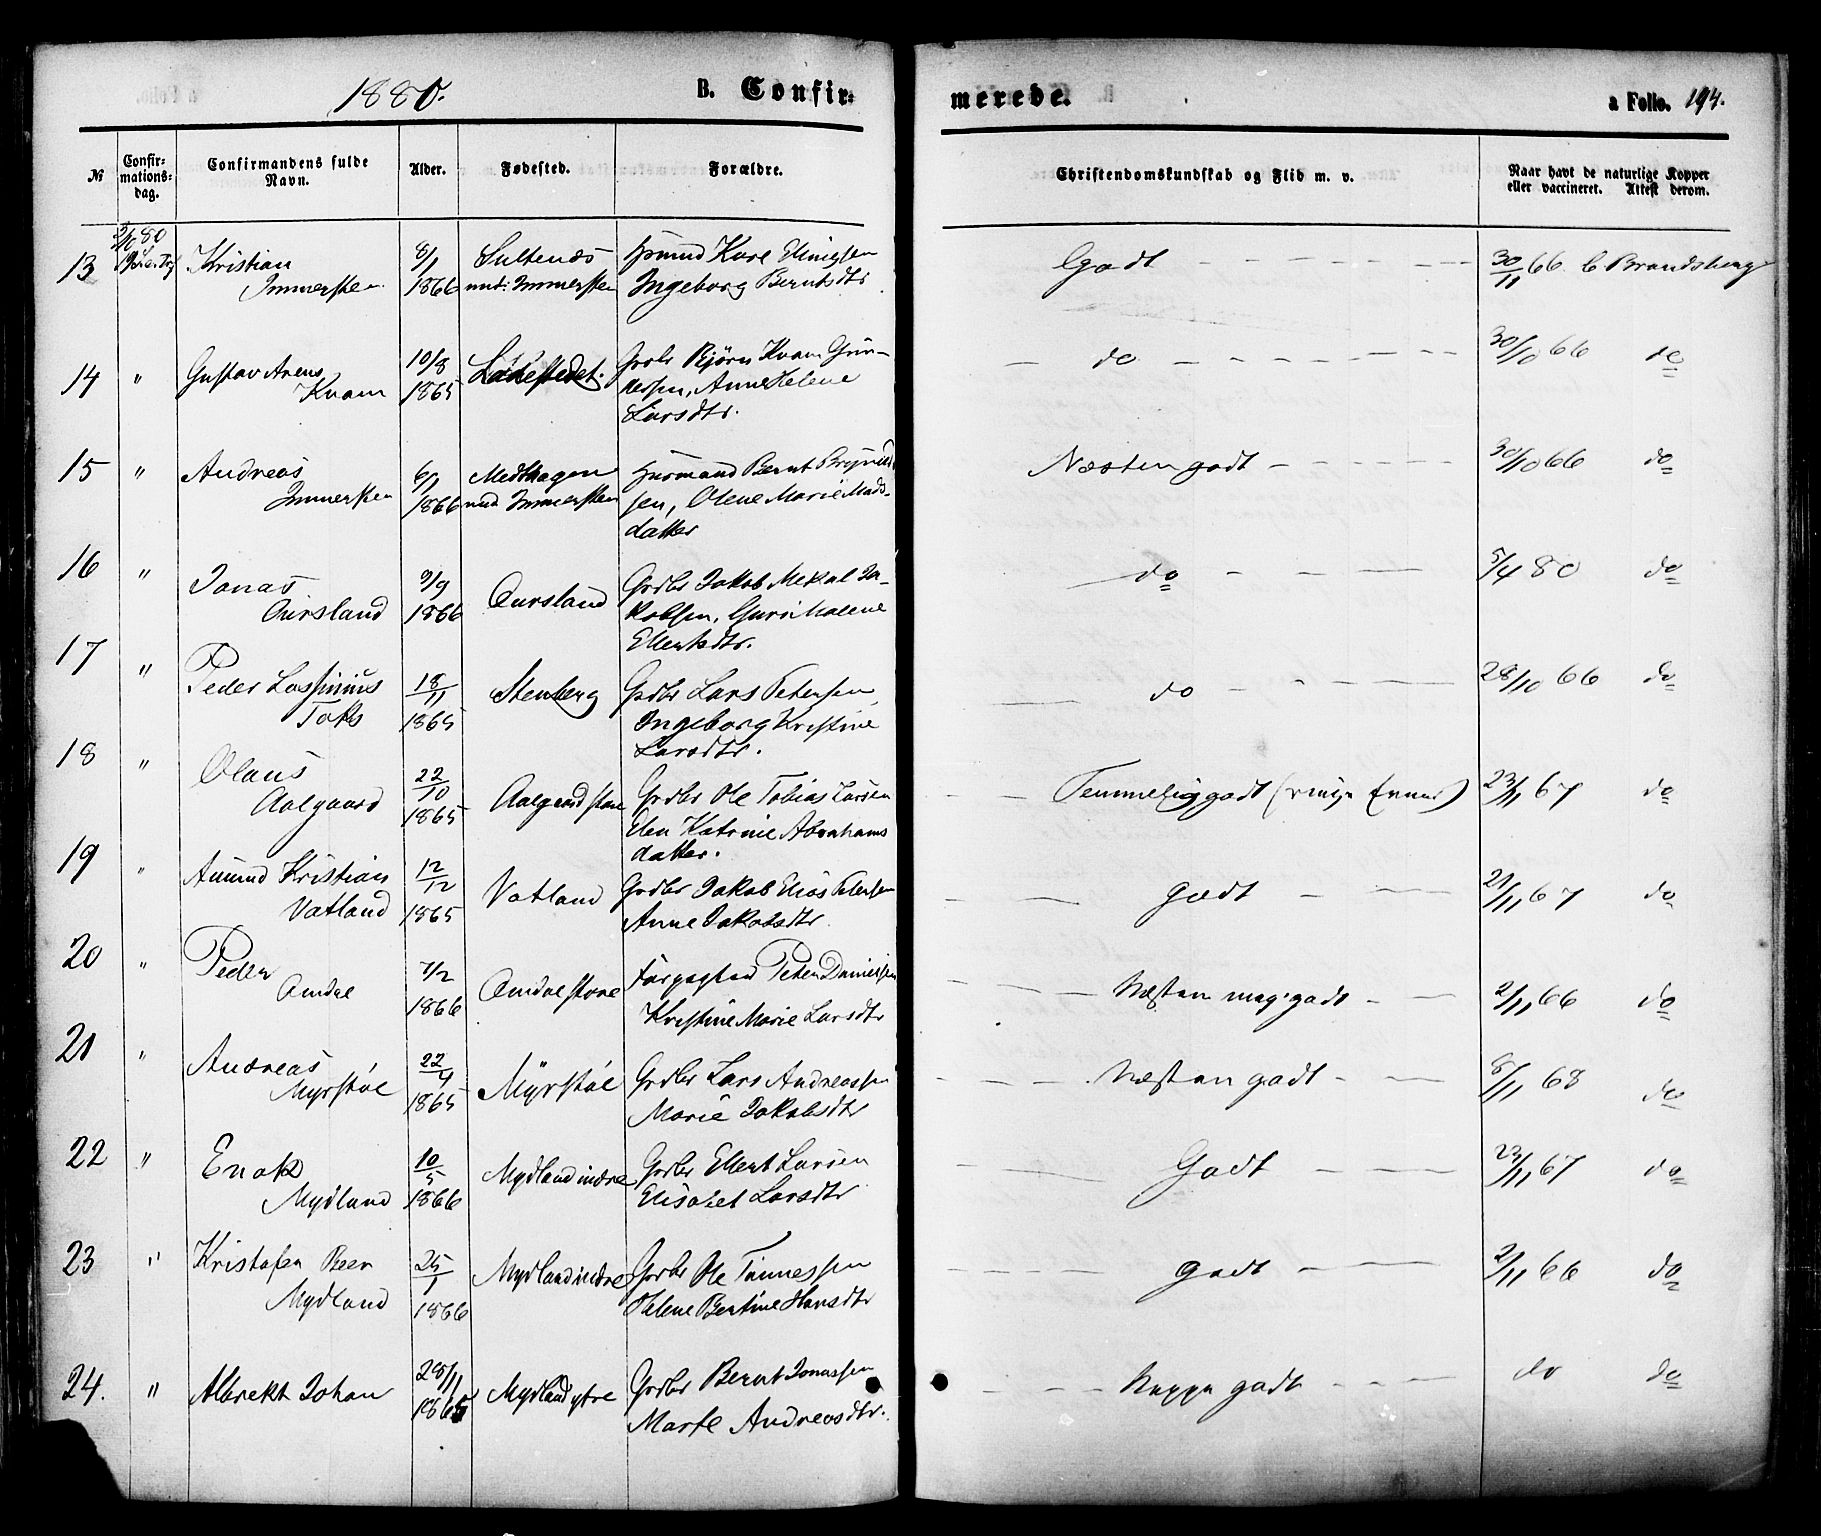 1880.
B. Confir-
merede.
a Folio. 194.
№
Confir-
mations-
dag.
Confirmandens fulde
Navn.
Alder.
Fødested.
Forældre.
Christendomskundskab og Flid m. v.
Naar havt de naturlige Kopper
eller vaccineret. Attest derom.
13
Kristian
Immersten
8/1
1866
Sultenæs
und: Immersten
Husmd Kare
Ingeborg Berntsdtr
Godt
30/11 66 C Brandsberg
14 "
Gustav Arens
Kvam
10/8
1865
Ladestedet.
Grdbr Bjørn Kvam Gun-
dersen, Anne Helene
Larsdtr.
do
30/10 66 do
15 "
Andreas
Immersten
6/1
1866
Medhagen
und Immersten
Husmand Bernt
sen, Olene Marie Mads-
datter
Næsten godt
30/10 66 do
16 "
Jonas
Aursland
9/9
1866
Aursland
Grdbr Jakob Mekal Ja-
kobsen, Guri Malene
Ellertsdtr.
do
5/4 80 do
17 "
Peder Lassinius
Toks
18/11
1865
Stenberg
Grdbr Lars Petersen,
Ingeborg Kristine
Larsdtr.
do
28/10 66 do
18 "
Olaus
Aalgaard
22/10
1865
Aalgaard
Grdbr Ole Tobias Larsen
Elen Katrine Abrahams
datter.
Temmelig godt (ringe Evner)
23/11 67 do
19 "
Amund Kristian
Vatland
12/12
1865
Vatland
Grdbr Jakob Elias Petersen
Anne Jakobsdtr
godt
21/11 67 do
20 "
Peder
Omdal
7/2
1866
Omdal store
Forpagter Peter Danielsen
Kristine Marie Larsdtr
Næsten meg. godt
2/11 66 do
21 "
Andreas
Myrstøl
22/4
1865
Myrstøl
Grdbr Lars Andreassen
Marie Jakobsdtr
Næsten godt
8/11 68 do
22 "
Enok
Mydland
10/5
1866
Mydland indre
Grdbr Ellert Larsen
Elisabet Larsdtr
Godt
23/11 67 do
23 "
Kristofer Beer
Mydland
25/1
1866
Mydland indre
Grdbr Ole Tønnessen
Helene Bertine Hansdtr
godt
2/11 66 do
24. "
Albrekt Johan
28/11
1865
Mydland ytre
Grdbr Bernt Jonassen
Marte Andreasdtr.
Neppe godt
do do